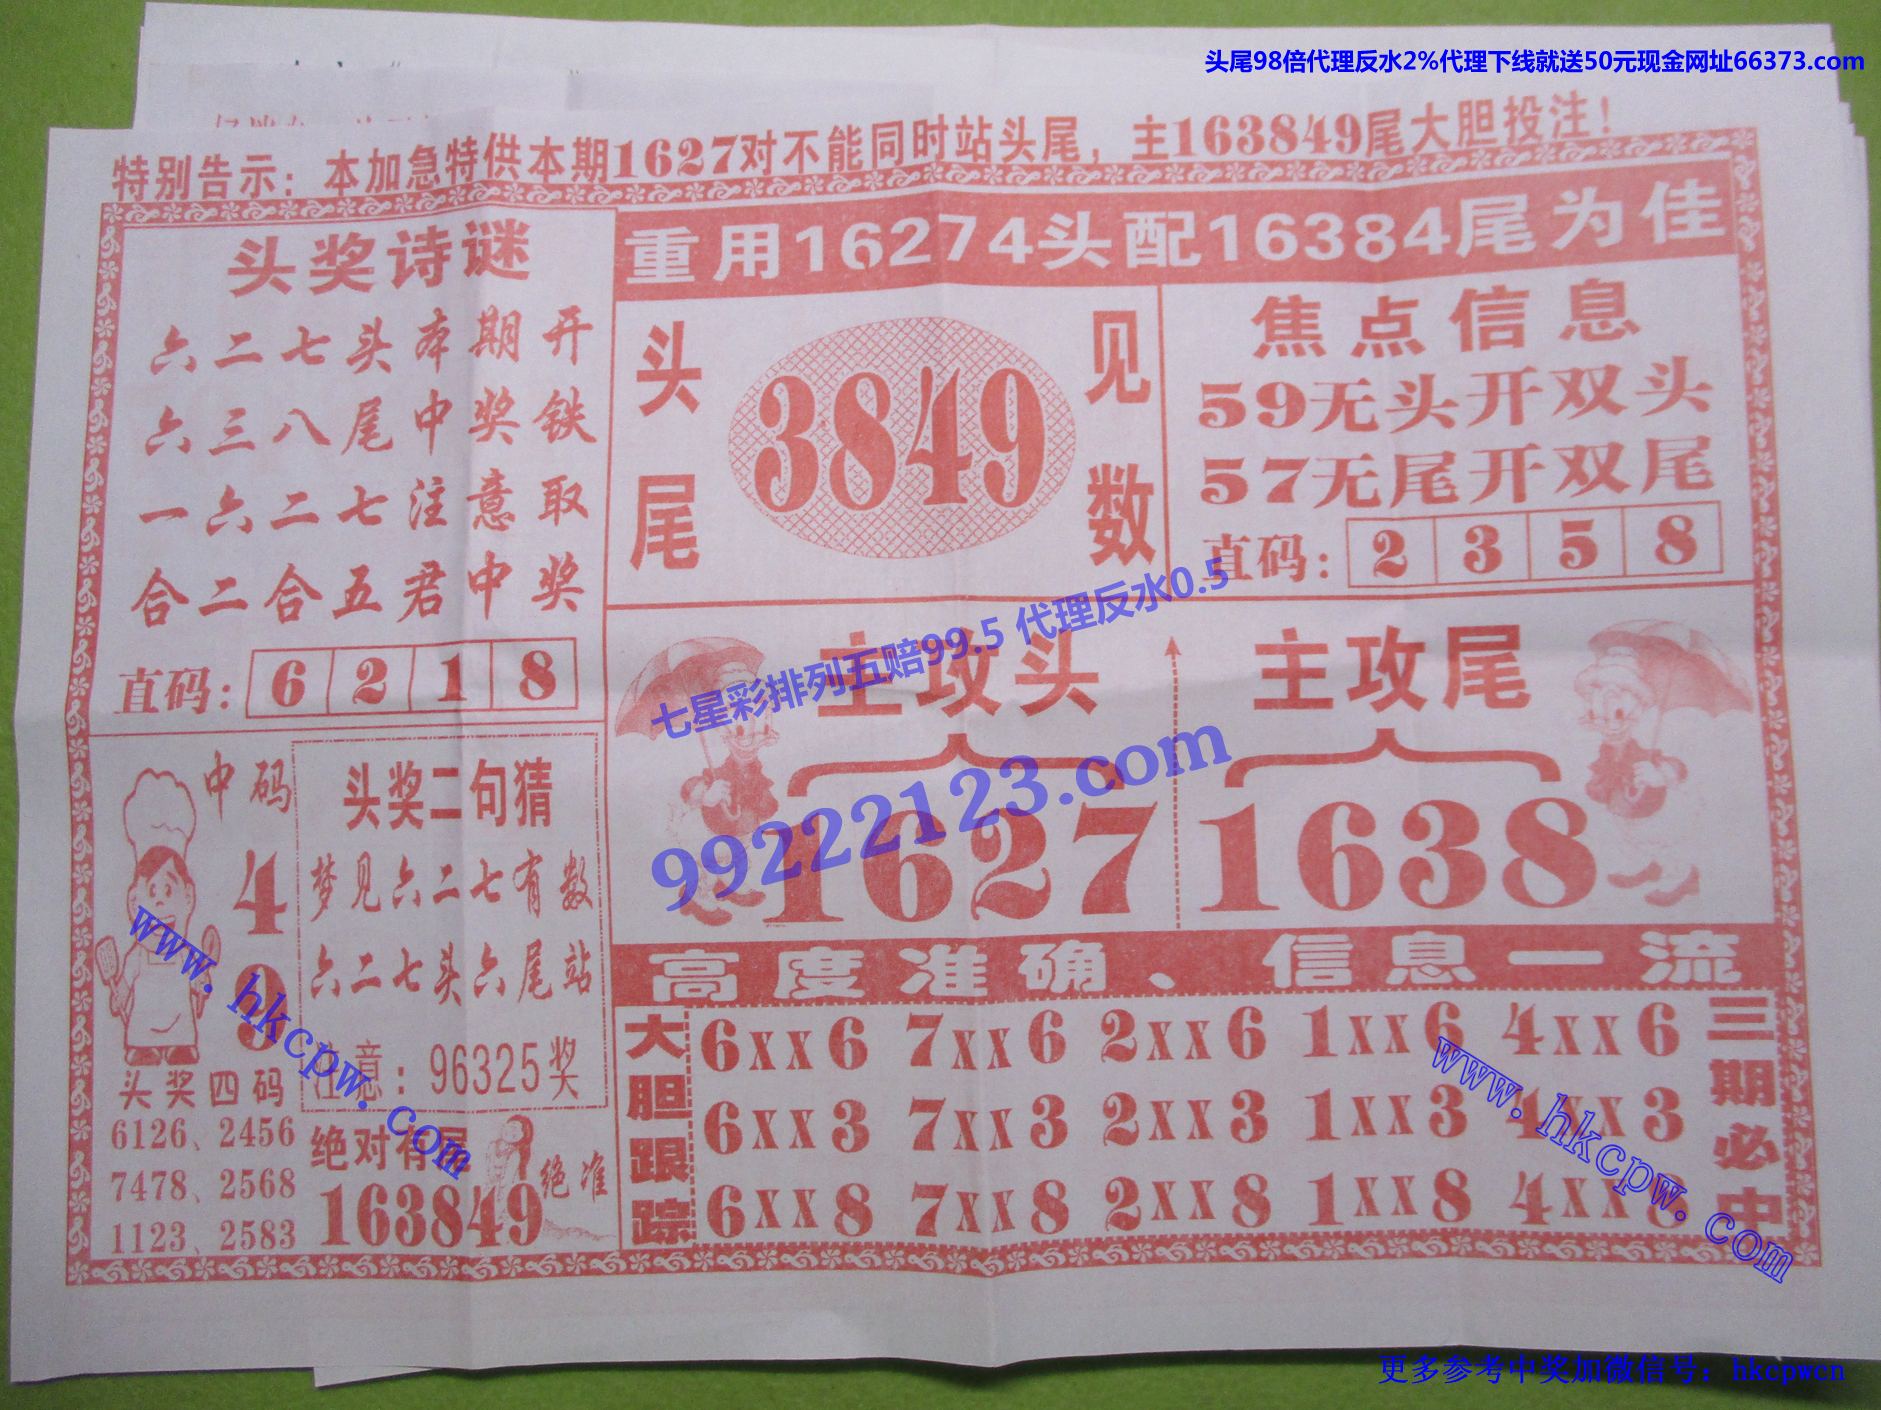 头尾98倍代理反水2%代理下线就送50元现金网址66373.com
特别告示：本加急特供本期1627对不能同时站头尾，主163849尾大胆投注！
头奖诗谜
六二七头本期开
六三八尾中奖铁
一六二七注意取
合二合五君中奖
直码：6 2 1 8
重用16274头配16384尾为佳
头尾
3849
见数
焦点信息
59无头开双头
57无尾开双尾
直码：2 3 5 8
七星彩排列五赔99.5 代理反水0.5
99222123.com
主攻头
1627
主攻尾
1638
中码
4
9
头奖四码
6126、2456
7478、2568
1123、2583
头奖二句猜
梦见六二七有数
六二七头六尾站
注意：96325奖
绝对有尾
163849
绝准
www.hkcpw.com
高度准确、信息一流
大胆跟踪
6xx6 7xx6 2xx6 1xx6 4xx6
6xx3 7xx3 2xx3 1xx3 4xx3
6xx8 7xx8 2xx8 1xx8 4xx8
三期必中
www.hkcpw.com
更多参考中奖加微信号：hkcpwcn